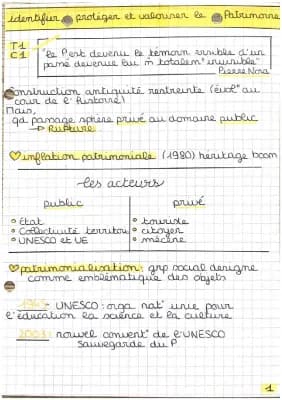 identifier, protéger et valoriser le Patrimoine
T1
C1
"le P est devenu le témoin visible d'un
passé devenue lui m totalem "invisible"
Pierre Nora
Construction antiquité restreinte (évol° au
cour de l'histoire)
Mais,
qd passage sphère privé au domaine public
→ Rupture
inflation patrimoniale (1980) héritage boom
les acteurs
public privé
Etat touriste
Collectivité territou citoyen
UNESCO et UE mécène
patrimonialisation: grp social designe
comme emblématique des objets
UNESCO: orga nat° unie pour
l'éducation la science et la culture
2003: nouvel convent° de l'UNESCO
sauvegarde du P
1